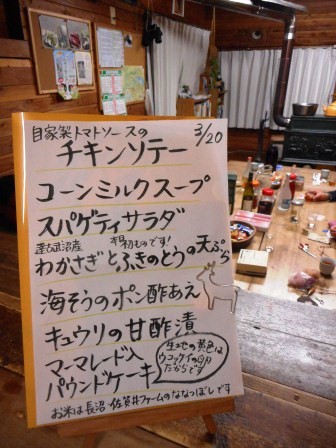 3/20
自家製トマトソースの
チキンソテー
コーンミルクスープ
スパゲティサラダ
達古武沼産 本日初ものです!
わかさぎとふきのとうの天ぷら
海そうのポン酢あえ
キュウリの甘酢漬
マーマレード入
パウンドケーキ
生地の黄色は
ウコッケイの卵
だからです
お米は長沼・佐賀井ファームのななつぼしです